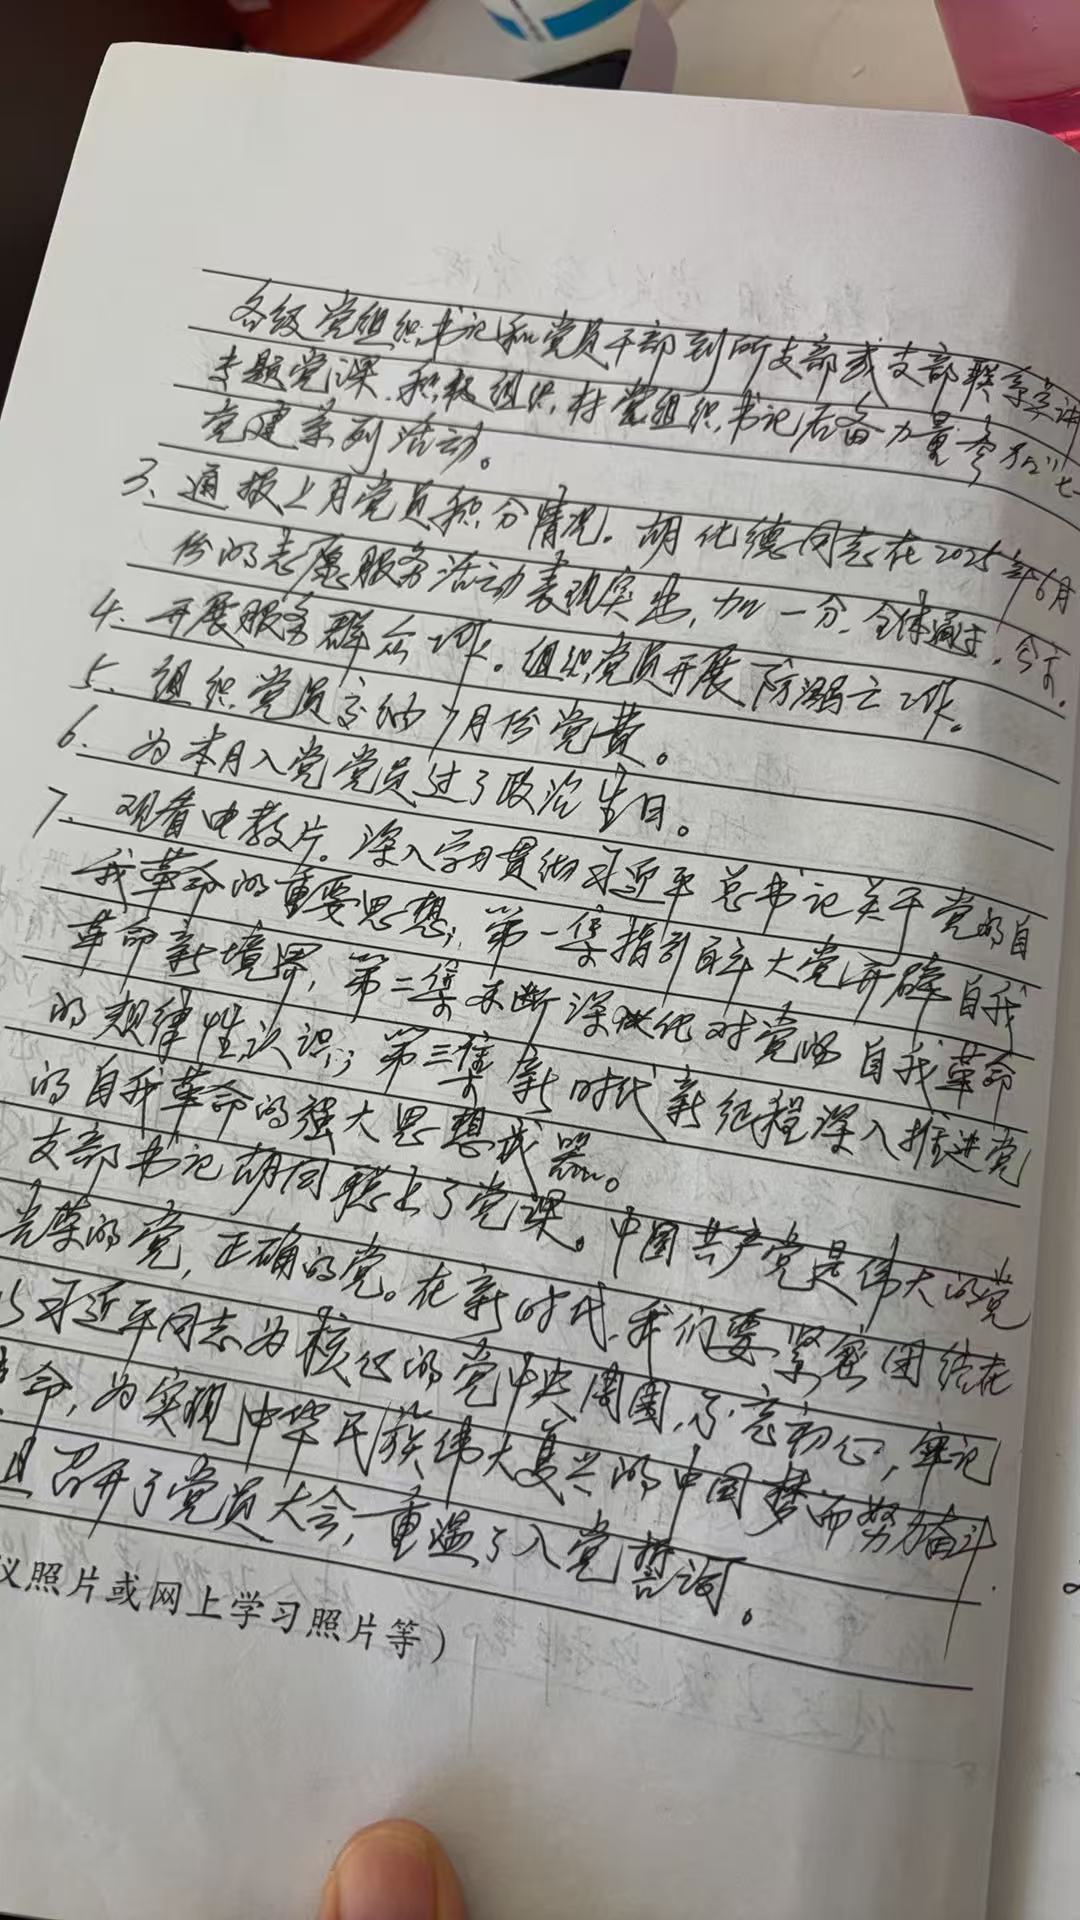 各级党组织书记和党员干部到所支部或支部联系点讲
专题党课.积极组织村党组织书记后备力量参加"七一
党建系列活动。
3、通报上月党员积分情况。胡化德同志在2025年6月
份的志愿服务活动表现突出,加一分.全体通过.公示.
4、开展服务群众工作。组织党员开展防溺亡工作。
5、组织党员交纳7月份党费。
6、为本月入党党员过了政治生日。
7、观看电教片。深入学习贯彻习近平总书记关于党的自
我革命的重要思想;第一集指引百年大党开辟自我
革命新境界,第二集不断深化对党的自我革命
的规律性认识;第三集新时代新征程深入推进党
的自我革命的强大思想武器。
支部书记胡同聪上了党课。中国共产党是伟大的党
光荣的党,正确的党。在新时代,我们要紧密团结在
以习近平同志为核心的党中央周围,不忘初心,牢记
使命,为实现中华民族伟大复兴的中国梦而努力奋斗.
且召开了党员大会,重温了入党誓词。
议照片或网上学习照片等)